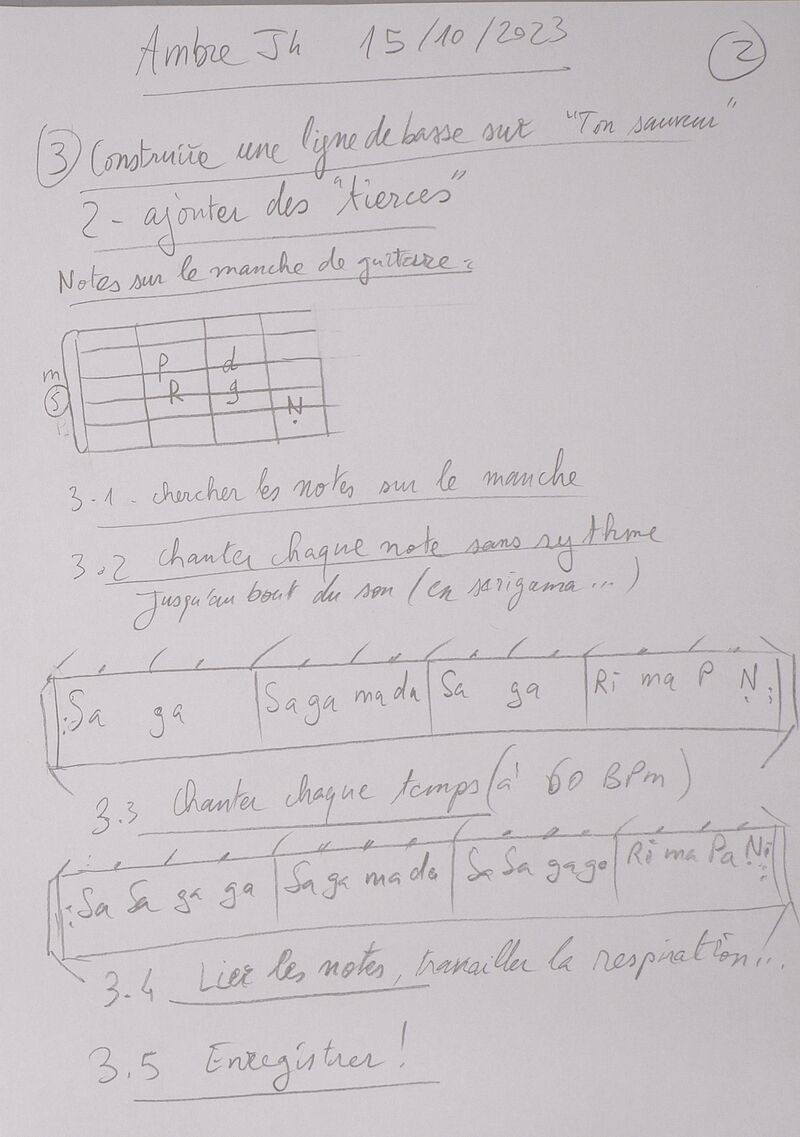 Ambre Jh 15/10/2023
2
3 Construire une ligne de basse sur "Ton sauveur"
2 - ajouter des "tierces"
Notes sur le manche de guitare :
m P d
S R g
N
3.1 - chercher les notes sur le manche
3.2 chanter chaque note sans rythme
Jusqu'au bout du son (en sarigama...)
Sa ga Sa ga ma da Sa ga Ri ma P N
3.3 Chanter chaque temps (à 60 BPm)
Sa Sa ga ga Sa ga ma da Sa Sa ga ga Ri ma Pa Ni
3.4 Lier les notes, travailler la respiration...
3.5 Enregistrer !